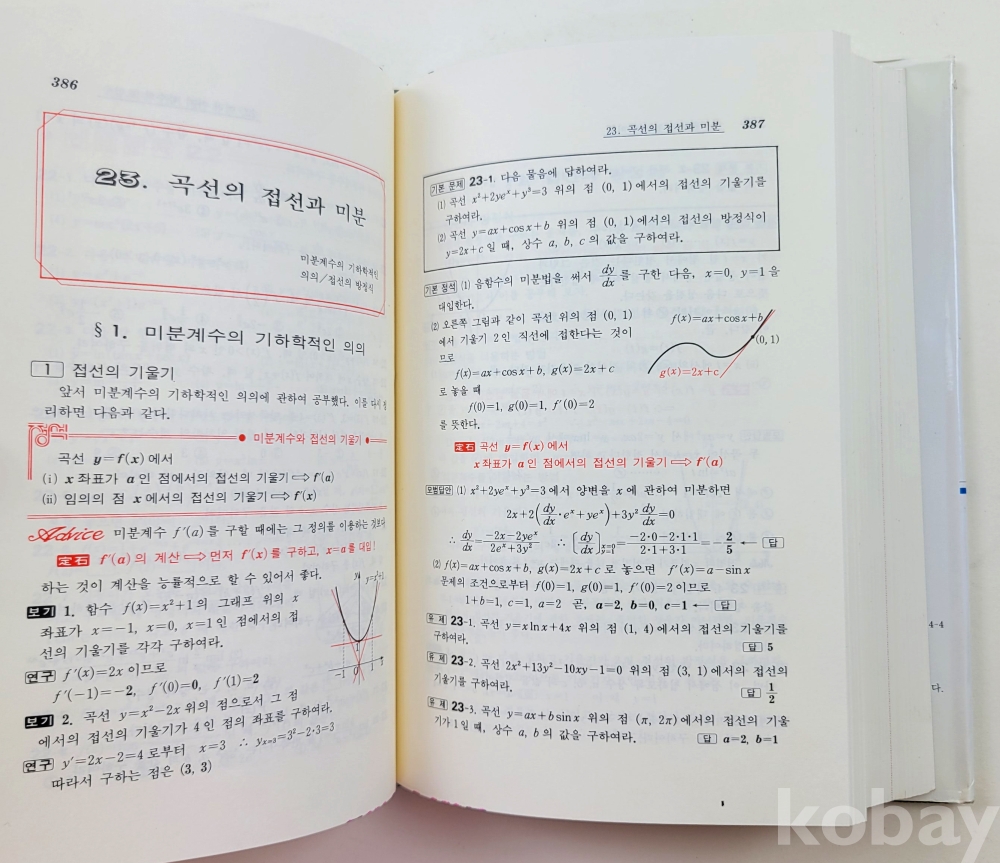 386
23. 곡선의 접선과 미분
미분계수의 기하학적인
의의/접선의 방정식
§ 1. 미분계수의 기하학적인 의의
1 접선의 기울기
앞서 미분계수의 기하학적인 의의에 관하여 공부했다. 이를 다시 정
리하면 다음과 같다.
정석
미분계수와 접선의 기울기
곡선 y=f(x) 에서
(i) x 좌표가 a 인 점에서의 접선의 기울기 ⟺ f'(a)
(ii) 임의의 점 x 에서의 접선의 기울기 ⟺ f'(x)
Advice 미분계수 f'(a)를 구할 때에는 그 정의를 이용하는 것보다
定石 f'(a)의 계산 ⟹ 먼저 f'(x)를 구하고, x=a를 대입!
하는 것이 계산을 능률적으로 할 수 있어서 좋다.
보기 1. 함수 f(x)=x²+1의 그래프 위의 x
좌표가 x=-1, x=0, x=1인 점에서의 접
선의 기울기를 각각 구하여라.
연구 f'(x)=2x 이므로
f'(-1)=-2, f'(0)=0, f'(1)=2
y
y=x²+1
-1 0 1 x
보기 2. 곡선 y=x²-2x 위의 점으로서 그 점
에서의 접선의 기울기가 4인 점의 좌표를 구하여라.
연구 y'=2x-2=4로부터 x=3 ∴ yₓ₌₃=3²-2·3=3
따라서 구하는 점은 (3, 3)
23. 곡선의 접선과 미분 387
기본 문제 23-1. 다음 물음에 답하여라.
(1) 곡선 x²+2yeˣ+y³=3 위의 점 (0, 1)에서의 접선의 기울기를
구하여라.
(2) 곡선 y=ax+cos x+b 위의 점 (0, 1)에서의 접선의 방정식이
y=2x+c 일 때, 상수 a, b, c의 값을 구하여라.
기본 정석 (1) 음함수의 미분법을 써서 dy/dx 를 구한 다음, x=0, y=1을
대입한다.
(2) 오른쪽 그림과 같이 곡선 위의 점 (0, 1)
에서 기울기 2인 직선에 접한다는 것이
므로
f(x)=ax+cos x+b, g(x)=2x+c
로 놓을 때
f(0)=1, g(0)=1, f'(0)=2
를 뜻한다.
f(x)=ax+cos x+b
(0, 1)
g(x)=2x+c
定石 곡선 y=f(x)에서
x 좌표가 a인 점에서의 접선의 기울기 ⟺ f'(a)
모범답안 (1) x²+2yeˣ+y³=3에서 양변을 x에 관하여 미분하면
2x+2(dy/dx·eˣ+yeˣ)+3y² dy/dx=0
∴ dy/dx=(-2x-2yeˣ)/(2eˣ+3y²) ∴ [dy/dx]ₓ₌₀, y=1=(-2·0-2·1·1)/(2·1+3·1)=-2/5 ← 답
(2) f(x)=ax+cos x+b, g(x)=2x+c로 놓으면 f'(x)=a-sin x
문제의 조건으로부터 f(0)=1, g(0)=1, f'(0)=2이므로
1+b=1, c=1, a=2 곧, a=2, b=0, c=1 ← 답
유제 23-1. 곡선 y=x ln x+4x 위의 점 (1, 4)에서의 접선의 기울기를
구하여라.
답 5
유제 23-2. 곡선 2x²+13y²-10xy-1=0 위의 점 (3, 1)에서의 접선의
기울기를 구하여라.
답 1/2
유제 23-3. 곡선 y=ax+b sin x 위의 점 (π, 2π)에서의 접선의 기울
기가 1일 때, 상수 a, b의 값을 구하여라.
답 a=2, b=1
4-4
다.
kobay